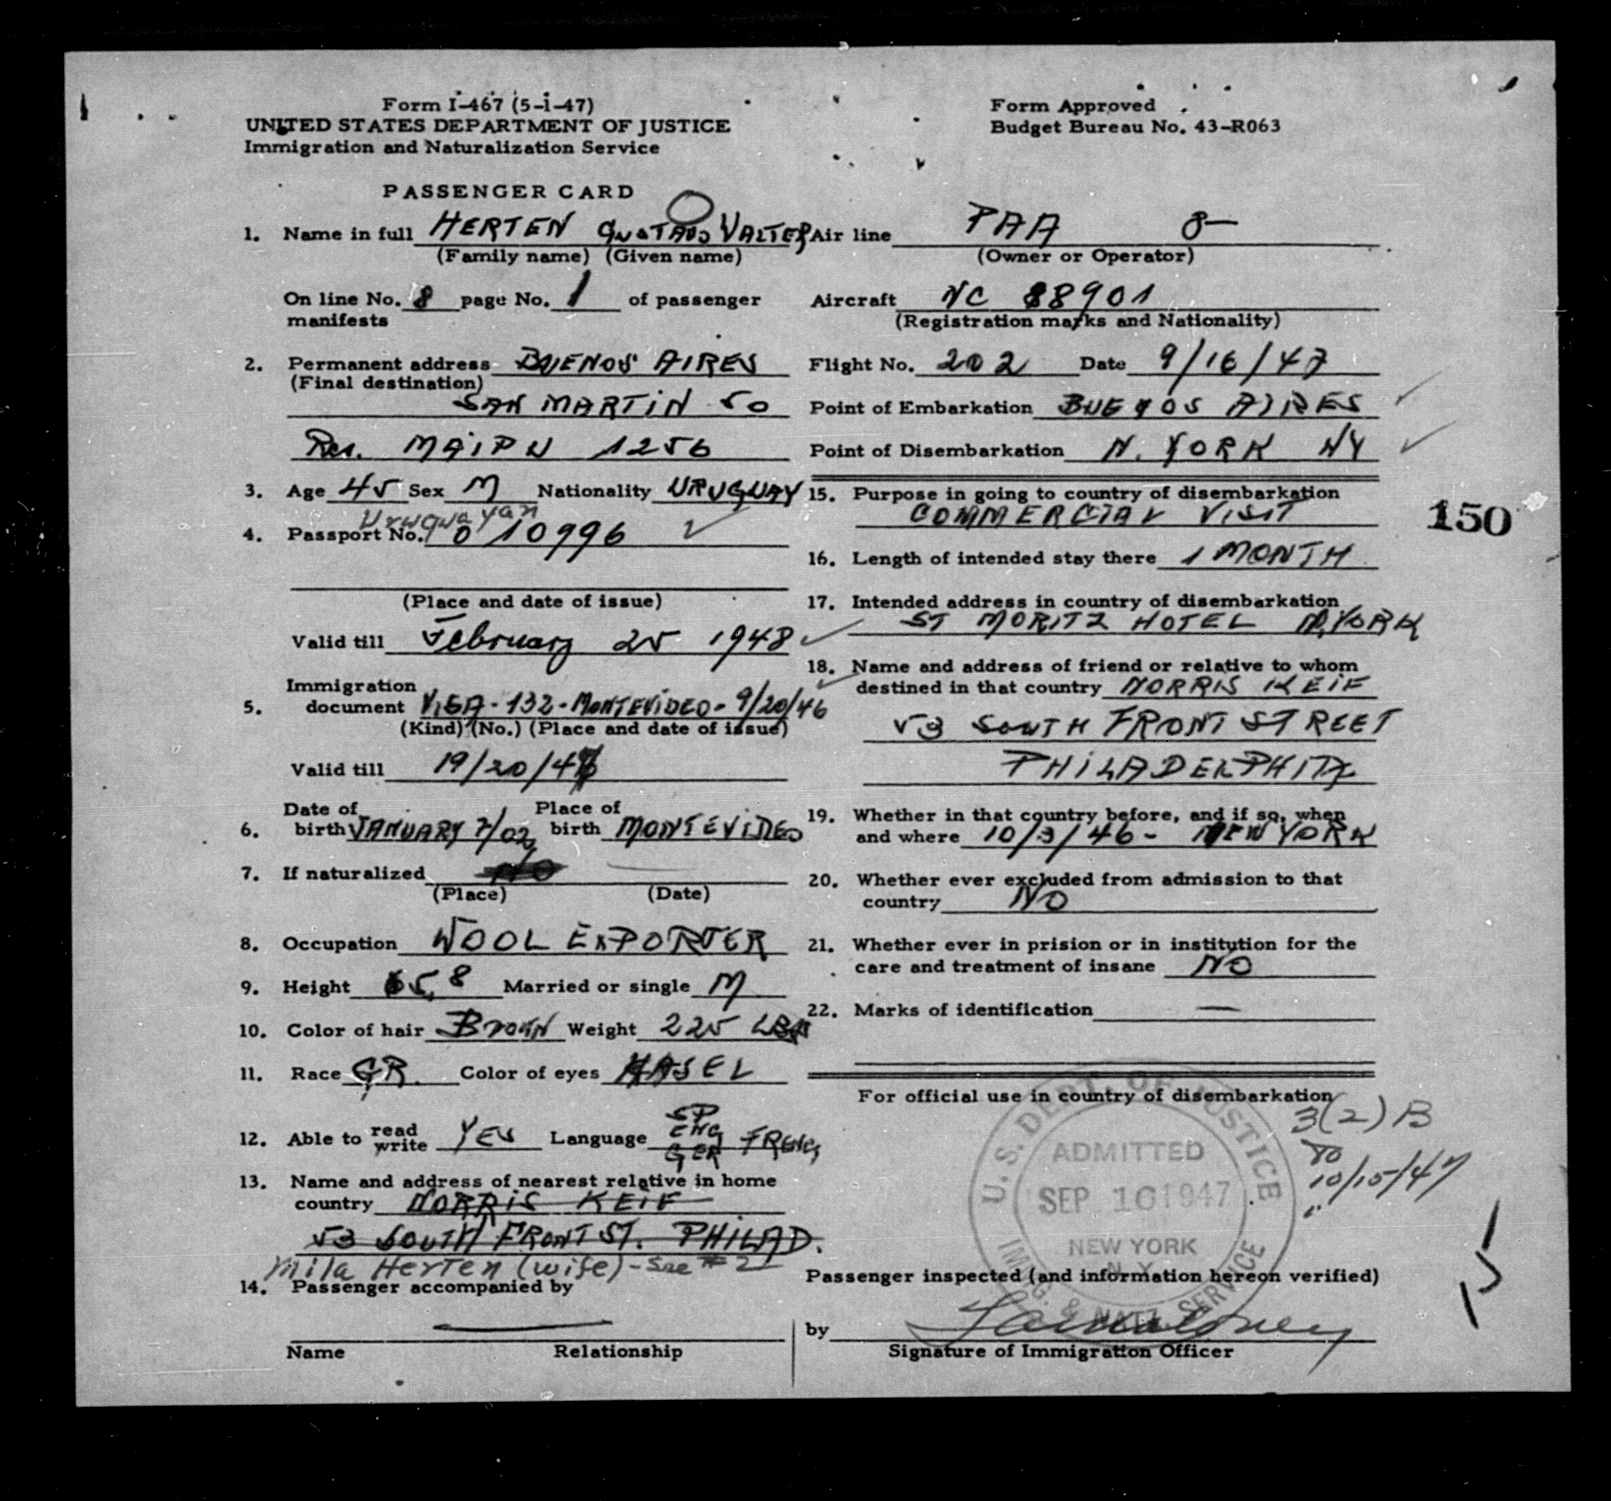 Form I-467 (5-1-47)
UNITED STATES DEPARTMENT OF JUSTICE
Immigration and Naturalization Service
Form Approved
Budget Bureau No. 43-R063
PASSENGER CARD
1. Name in full HERTEN GUSTAVO VALTER
(Family name) (Given name)
On line No. 8 page No. 1 of passenger
manifests
2. Permanent address BUENOS AIRES
(Final destination)
SAN MARTIN 50
Res. MAIPU 1256
3. Age 45 Sex M Nationality URUGUAY
Uruguayan
4. Passport No. 010996
(Place and date of issue)
Valid till February 25 1948
Immigration
5. document VISA - 132 - MONTEVIDEO - 9/20/46
(Kind) (No.) (Place and date of issue)
Valid till 19/20/47
Date of Place of
6. birth JANUARY 7/02 birth MONTEVIDEO
7. If naturalized NO
(Place) (Date)
8. Occupation WOOL EXPORTER
9. Height 5,8 Married or single M
10. Color of hair BROWN Weight 225 LBS
11. Race GR. Color of eyes HASEL
12. Able to read write YES Language SP ENG GER FRENC
13. Name and address of nearest relative in home
country NORRIS KEIF
53 SOUTH FRONT ST. PHILAD.
Mila Herten (wife) - See #2
14. Passenger accompanied by
Name Relationship
Air line PAA 8-
(Owner or Operator)
Aircraft NC 88901
(Registration marks and Nationality)
Flight No. 202 Date 9/16/47
Point of Embarkation BUENOS AIRES
Point of Disembarkation N. YORK NY
15. Purpose in going to country of disembarkation
COMMERCIAL VISIT
16. Length of intended stay there 1 MONTH
17. Intended address in country of disembarkation
ST MORITZ HOTEL N.YORK
18. Name and address of friend or relative to whom
destined in that country NORRIS KEIF
53 SOUTH FRONT STREET
PHILADELPHIA
19. Whether in that country before, and if so, when
and where 10/3/46 - NEW YORK
20. Whether ever excluded from admission to that
country NO
21. Whether ever in prision or in institution for the
care and treatment of insane NO
22. Marks of identification —
For official use in country of disembarkation
3(2) B
TO
10/15/47
U.S. DEPT. OF JUSTICE
ADMITTED
SEP 16 1947
NEW YORK
N. Y.
IMMIG. & NATZ. SERVICE
Passenger inspected (and information hereon verified)
by
Signature of Immigration Officer
150